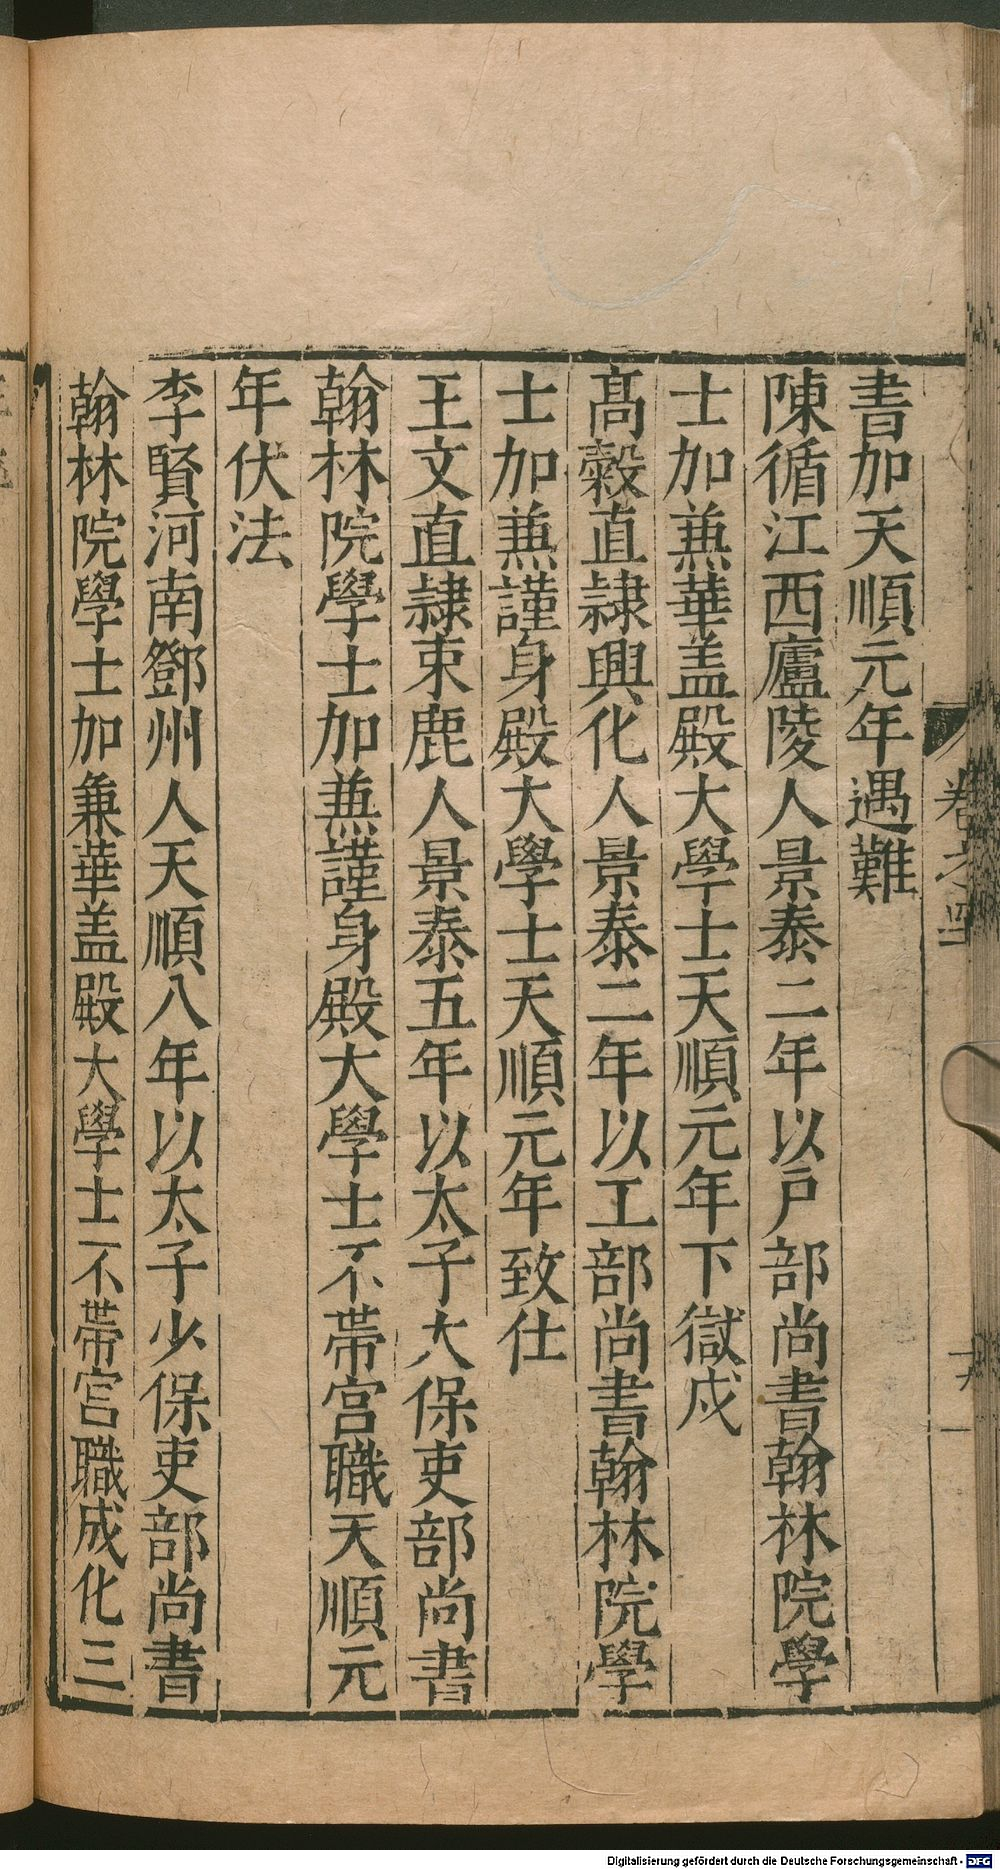 書加天順元年遇難
陳循江西廬陵人景泰二年以戶部尚書翰林院學
士加兼華盖殿大學士天順元年下獄戍
髙榖直隷興化人景泰二年以工部尚書翰林院學
士加兼謹身殿大學士天順元年致仕
王文直隷束鹿人景泰五年以太子太保吏部尚書
翰林院學士加兼謹身殿大學士不帶宫職天順元
年伏法
李賢河南鄧州人天順八年以太子少保吏部尚書
翰林院學士加兼華盖殿大學士不帶宫職成化三
卷之
Digitalisierung gefördert durch die Deutsche Forschungsgemeinschaft - DFG